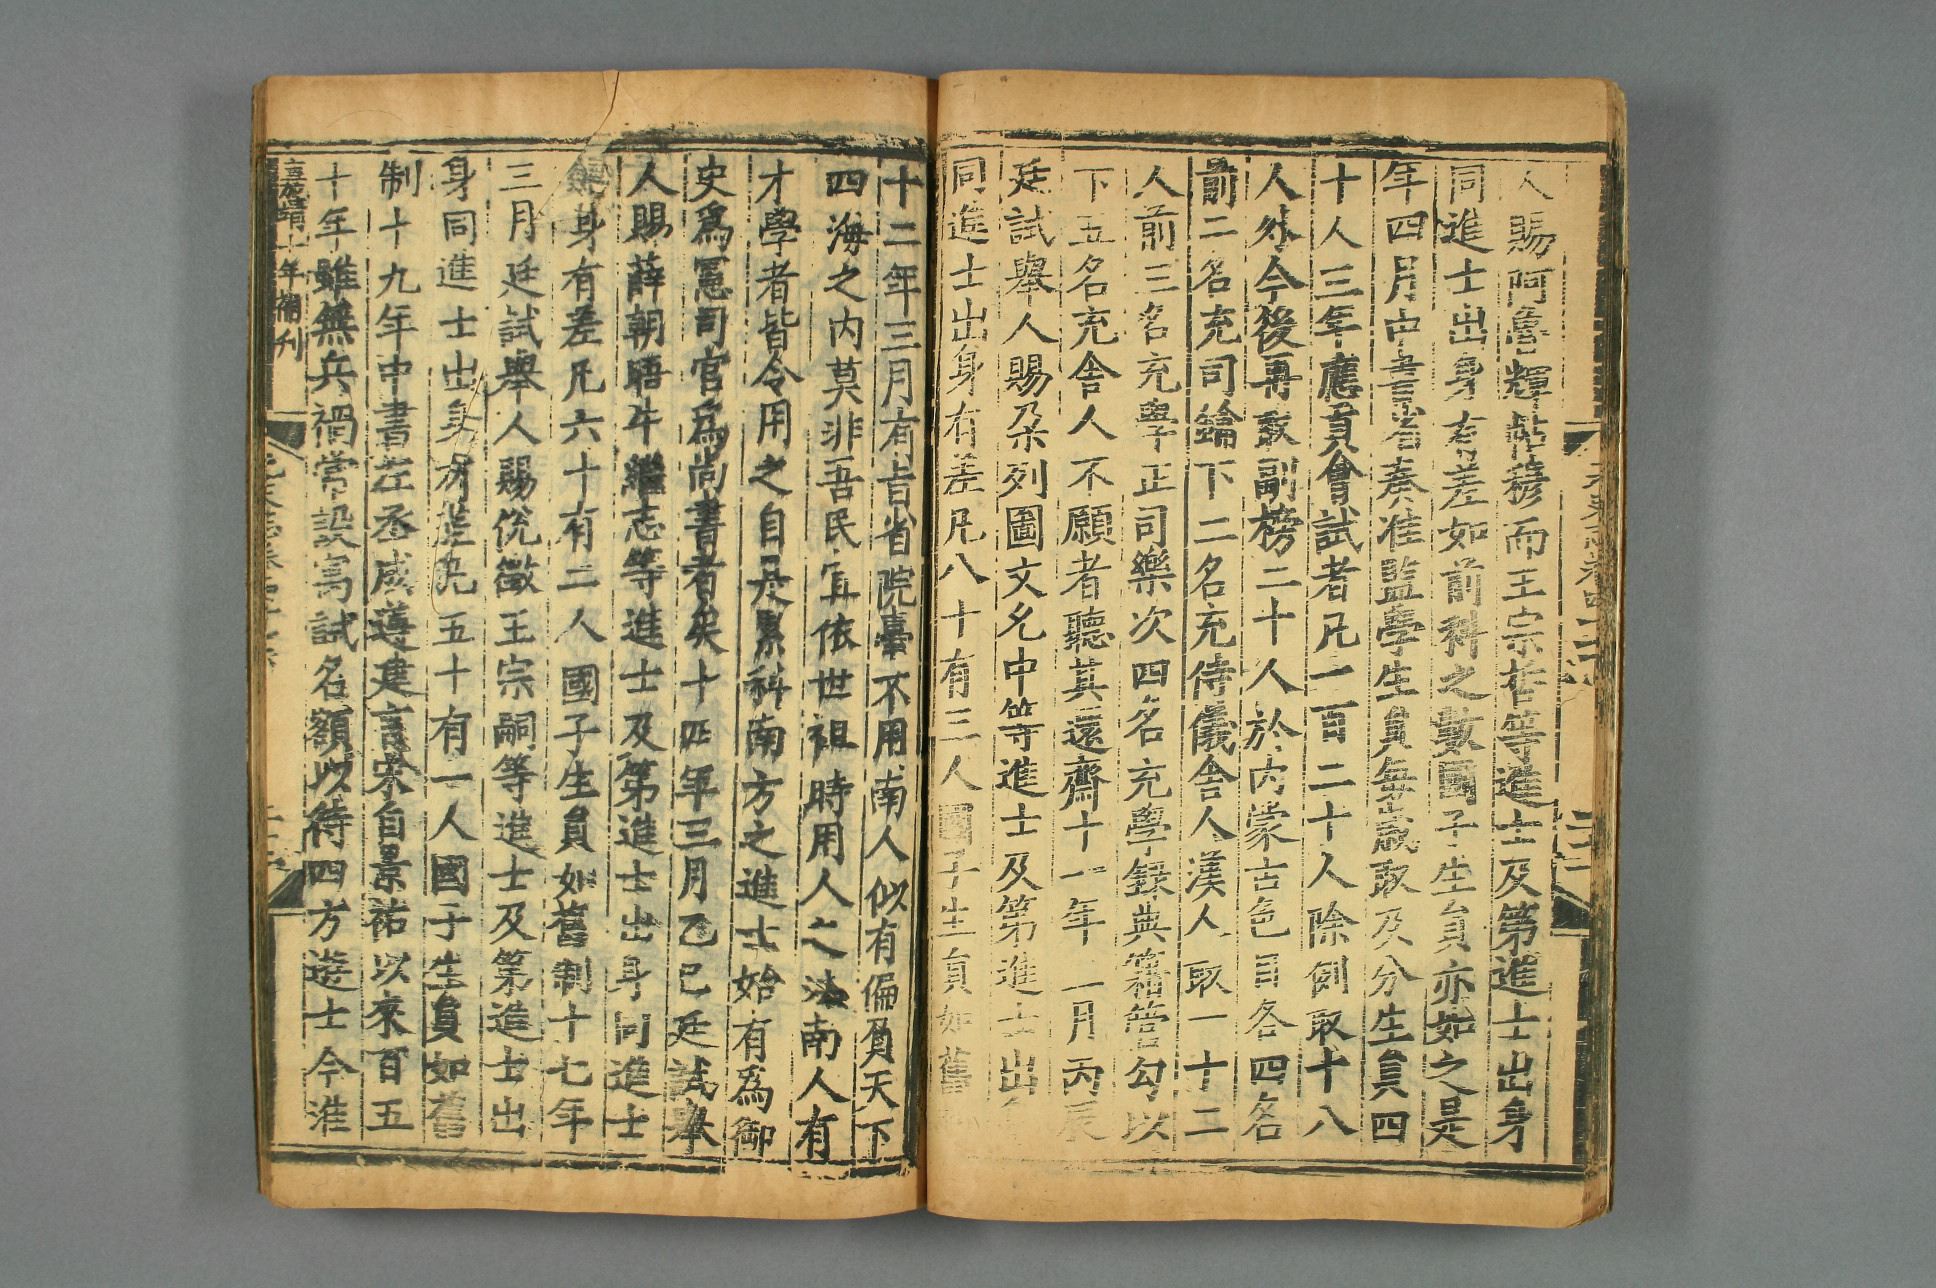 人賜阿魯輝帖穆而王宗哲等進士及第進士出身
同進士出身有差如前科之數國子生員亦如之是
年四月中書省奏准監學生員每歲取及分生員四
十人三年應貢會試者凡一百二十人除例取十八
人外今後再取副榜二十人於內蒙古色目各四名
前二名充司鑰下二名充侍儀舍人漢人取一十二
人前三名充學正司樂次四名充學錄典籍管勾以
下五名充舍人不願者聽其還齋十一年二月丙辰
廷試舉人賜朶列圖文允中等進士及第進士出身
同進士出身有差凡八十有三人國子生員如舊
十二年三月有旨省院臺不用南人似有偏負天下
四海之內莫非吾民宜依世祖時用人之法南人有
才學者皆令用之自是累科南方之進士始有爲御
史爲憲司官爲尚書者矣十四年三月乙巳廷試舉
人賜薛朝晤牛繼志等進士及第進士出身同進士
出身有差凡六十有二人國子生員如舊制十七年
三月廷試舉人賜俛徵王宗嗣等進士及第進士出
身同進士出身有差凡五十有一人國子生員如舊
制十九年中書左丞成遵建言宋自景祐以來百五
十年雖無兵禍常設寓試名額以待四方遊士今淮
嘉靖十年補刊